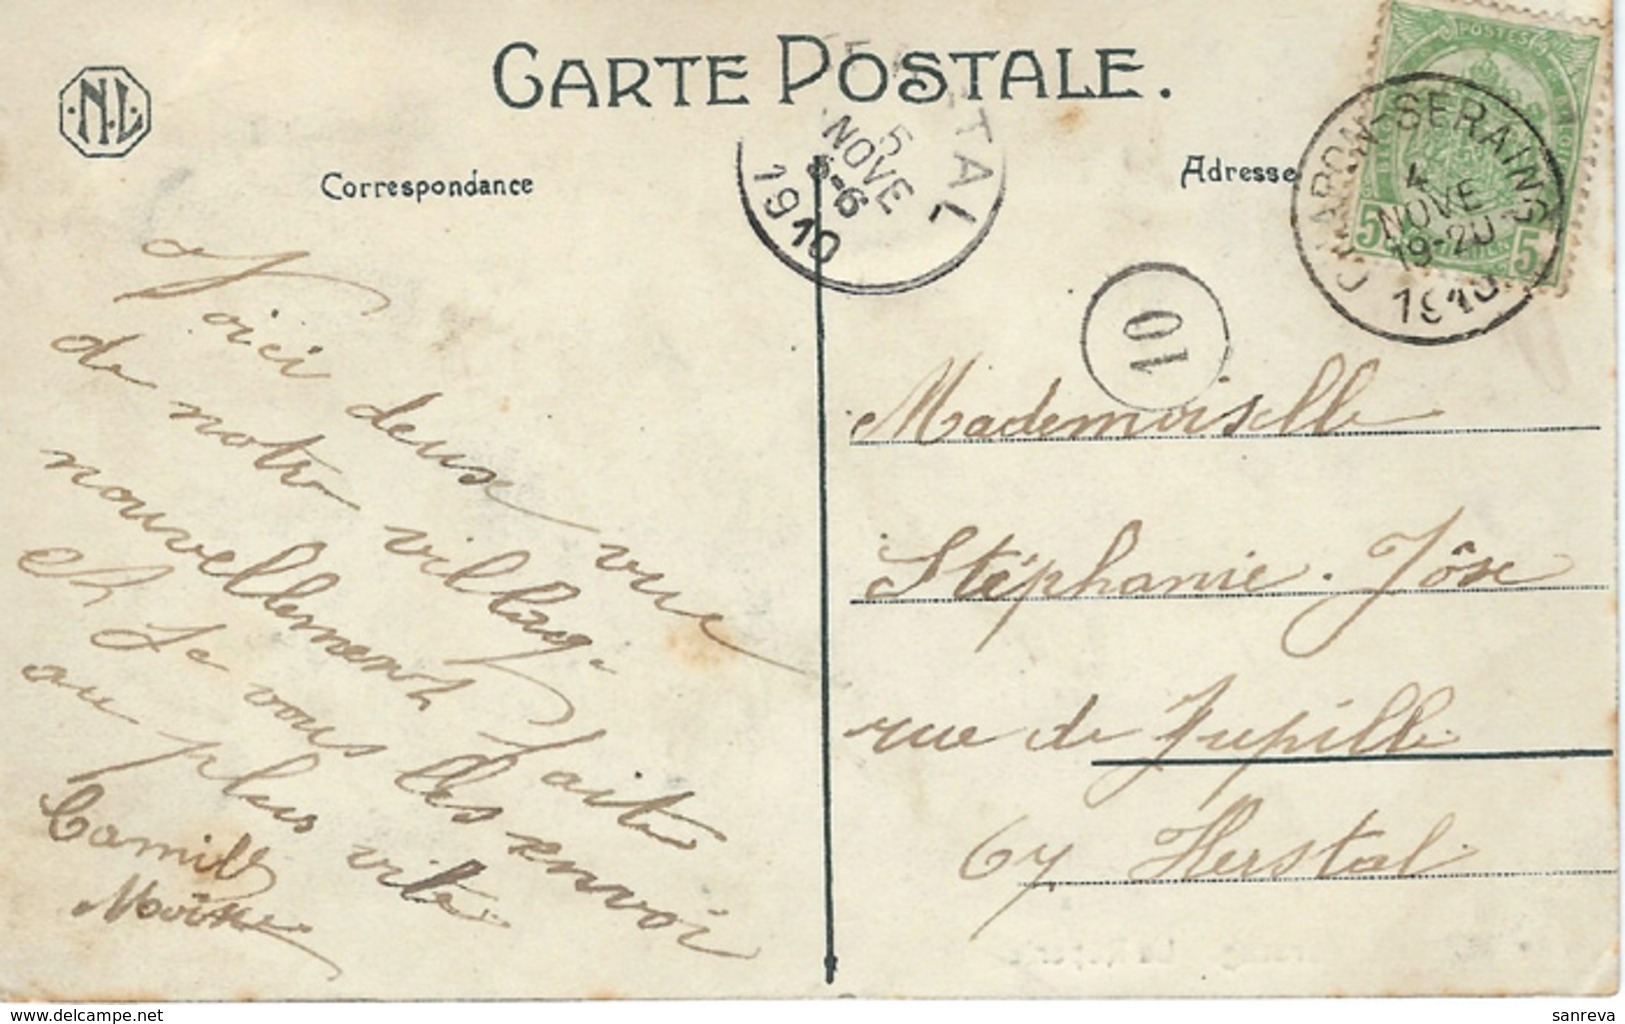 CARTE POSTALE.
·N.L.
Correspondance
Adresse
TAL
5
NOVE
5-6
1910
CHARON-SERAING
4
NOVE
19-20
1910
POSTES
5 5
10
Voici deux vue
de notre village
nouvellement faite
et Je vous les envoi
au plus vite
Camille
Mademoiselle
Stéphanie. Jôse
rue de Jupille
67 Herstal
www.delcampe.net
sanreva